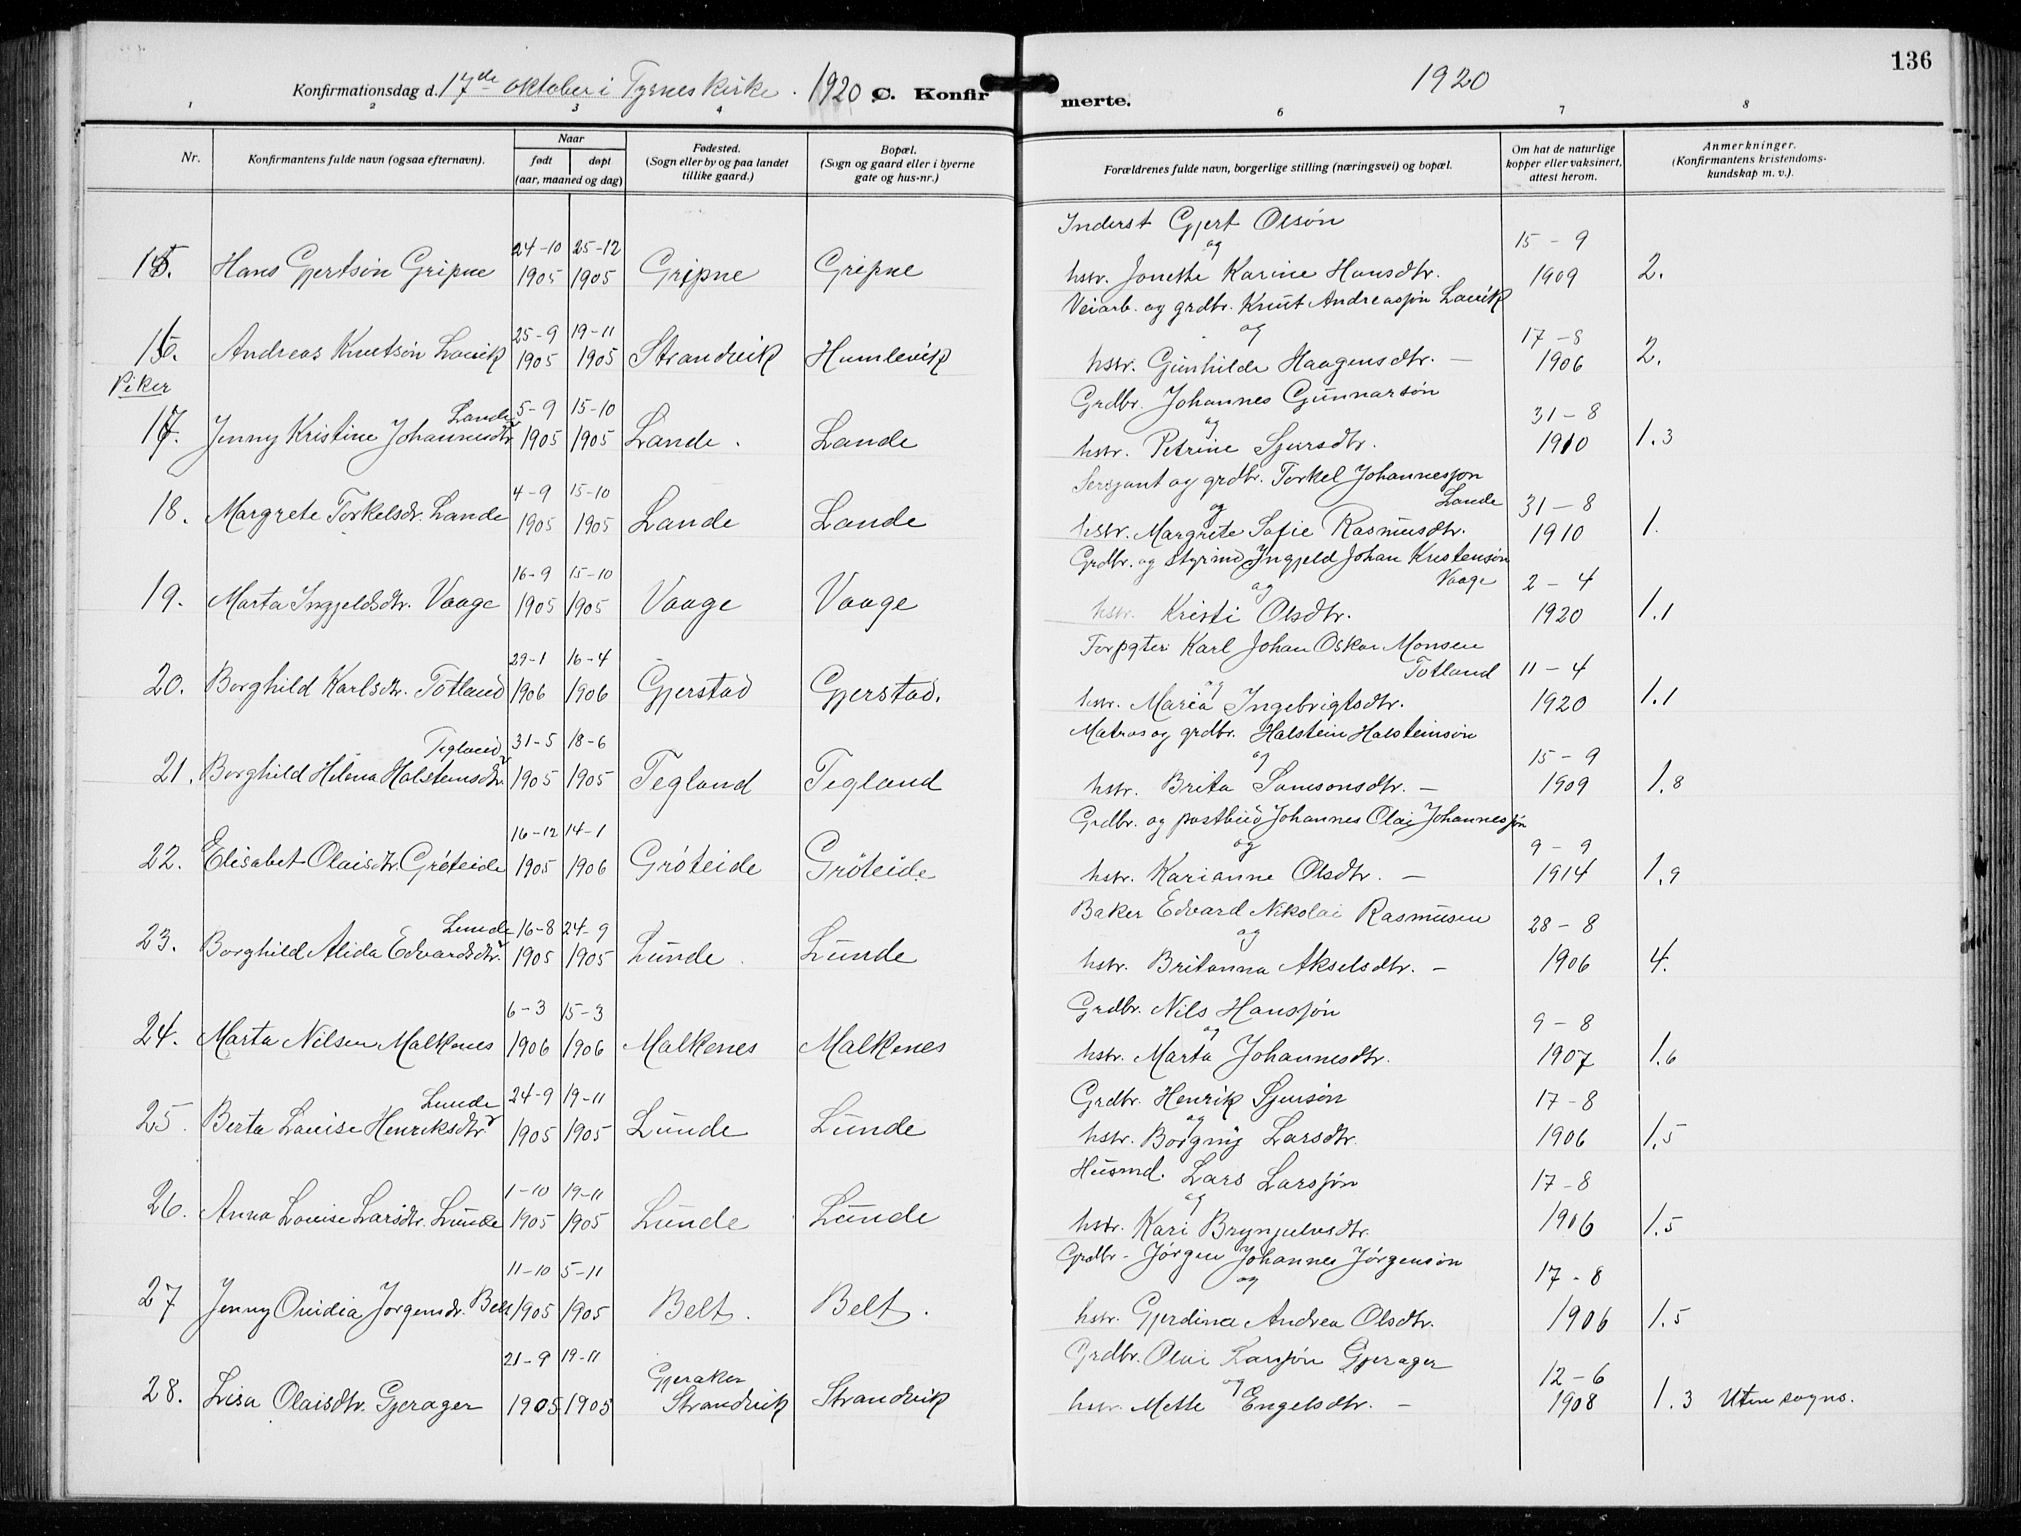 136
Konfirmationsdag d. 17de oktober i Tysnes kirke. 1920 C. Konfirmerte. 1920
1 2 3 4 6 7 8
Nr.
Konfirmantens fulde navn (ogsaa efternavn).
Naar
født døpt
(aar, maaned og dag)
Fødested.
(Sogn eller by og paa landet
tillike gaard.)
Bopæl.
(Sogn og gaard eller i byerne
gate og hus-nr.)
Forældrenes fulde navn, borgerlige stilling (næringsvei) og bopæl.
Om hat de naturlige
kopper eller vaksinert,
attest herom.
Anmerkninger.
(Konfirmantens kristendoms-
kundskap m. v.).
Inderst Gjert Olsøn
24-10 25-12 og 15-9
15. Hans Gjertsøn Gripne 1905 1905 Gripne Gripne hstr. Jonette Karine Hansdtr. 1909 2.
Veiarb. og grdbr. Knut Andreassøn Lauvik
25-9 19-11 og 17-8
16. Andreas Knutsøn Lauvik 1905 1905 Strandvik Humlevik hstr. Gunhilde Haagensdtr. — 1906 2.
Piker
Grdbr. Johannes Gunnarsøn
Lande 5-9 15-10 og 31-8
17. Jenny Kristine Johannesdtr. 1905 1905 Lande. Lande hstr. Petrine Sjursdtr. 1910 1.3
Sersjant og grdbr. Torkel Johannesson
4-9 15-10 Lande 31-8
og
18. Margrete Torkelsdr. Lande 1905 1905 Lande Lande hstr. Margrete Sofie Rasmusdtr. 1910 1.
Grdbr. og styrmd Ingjeld Johan Kristensøn
16-9 15-10 Vaage 2-4
og
19. Marta Ingjeldsdtr. Vaage 1905 1905 Vaage Vaage hstr. Kristi Olsdtr. 1920 1.1
Forpgter Karl Johan Oskar Monsen
29-1 16-4 Totland 11-4
og
20. Borghild Karlsdtr. Totland 1906 1906 Gjerstad Gjerstad. hstr. Maria Ingebrigtsdtr. 1920 1.1
Matros og grdbr. Halstein Halsteinsøn
Tegland 31-5 18-6 og 15-9
21. Borghild Helena Halsteinsdtr. 1905 1905 Tegland Tegland hstr. Brita Samsonsdtr. — 1909 1.8
Grdbr. og postbud Johannes Olai Johannessøn
16-12 14-1 og 9-9
22. Elisabet Olaisdtr. Grøteide 1905 1906 Grøteide Grøteide hstr. Karianne Olsdtr. — 1914 1.9
Baker Edvard Nikolai Rasmusen
Lunde 16-8 24-9 og 28-8
23. Borghild Alida Edvardsdtr. 1905 1905 Lunde. Lunde hstr. Britanna Akselsdtr. — 1906 4.
Grdbr. Nils Hanssøn
6-3 15-3 og 9-8
24. Marta Nilsen Malkenes 1906 1906 Malkenes Malkenes hstr. Marta Johannesdtr. 1907 1.6
Grdbr. Henrik Sjursøn
Lunde 24-9 19-11 og 17-8
25. Berta Louise Henriksdtr. 1905 1905 Lunde Lunde hstr. Borgny Larsdtr. 1906 1.5
Husmd. Lars Larssøn
1-10 19-11 og 17-8
26. Anna Louise Larsdtr. Lunde 1905 1905 Lunde Lunde hstr. Kari Brynjulvsdtr. 1906 1.5
Grdbr. Jørgen Johannes Jørgensøn
11-10 5-11 og 17-8
27 Jenny Ovidia Jørgensdr. Belt 1905 1905 Belt. Belt. hstr. Gjerdina Andrea Olsdtr. 1906 1.5
Grdbr. Olai Larssøn Gjerager
21-9 19-11 Gjeraker og 12-6
28. Lisa Olaisdtr. Gjerager 1905 1905 Strandvik Strandvik hstr. Mette Engelsdtr. — 1908 1.3 Uten sogns.